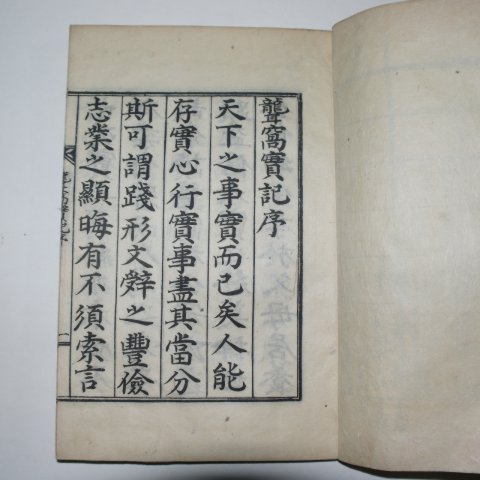 聾窩實記序
天下之事實而已矣人能
存實心行實事盡其當分
斯可謂踐形文辭之豐儉
志業之顯晦有不須索言